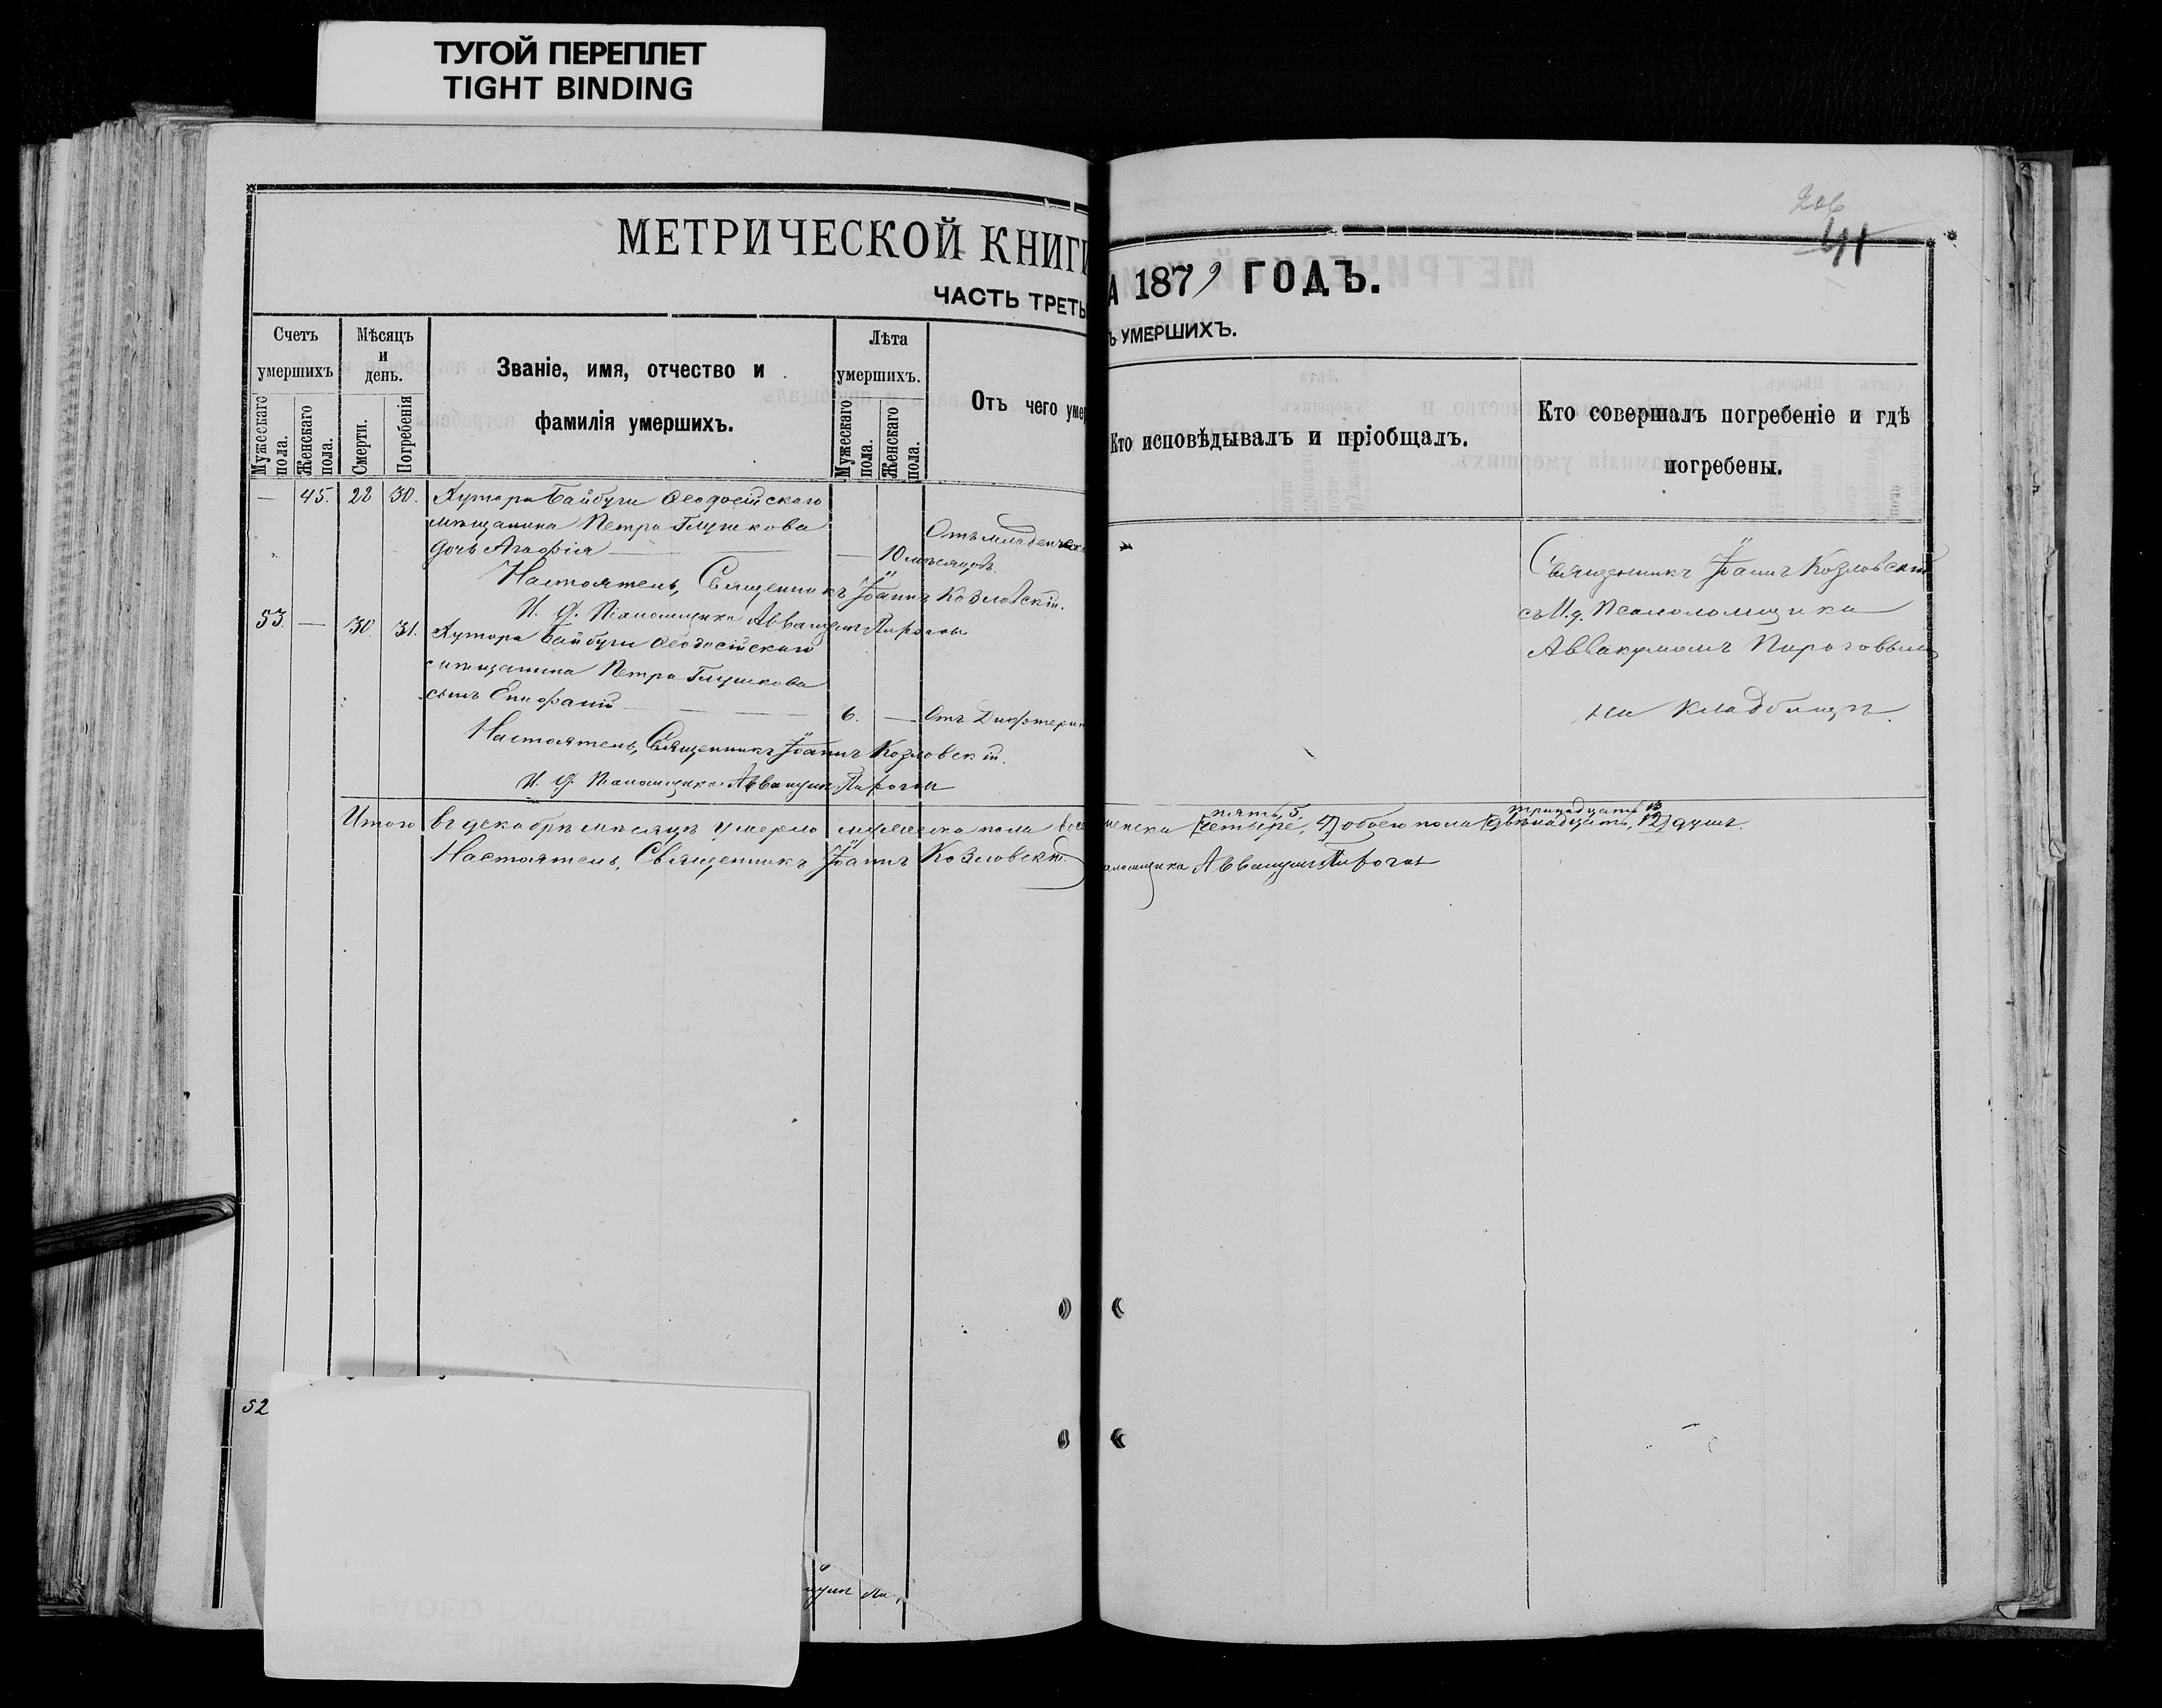 ТУГОЙ ПЕРЕПЛЕТ
TIGHT BINDING
МЕТРИЧЕСКОЙ КНИГИ
ЧАСТЬ ТРЕТЬ
Счетъ умершихъ
Мужескаго пола.
Женскаго пола.
Мѣсяцъ и день.
Смерти.
Погребенія
Званіе, имя, отчество и
фамилія умершихъ.
Лѣта умершихъ.
Мужескаго пола.
Женскаго пола.
Отъ чего умер
— 45. 22 30. Хутора Байбуги Ѳеодосійскаго
мѣщанина Петра Глушкова
дочь Агафія — — 10 мѣсяцовъ. Отъ младенческ
Настоятель, Священникъ Іоаннъ Козловскій.
И. д. Псаломщика Аввакумъ Пироговъ
53. — 30. 31. Хутора Байбуги Ѳеодосійскаго
мѣщанина Петра Глушкова
сынъ Епифаній — 6. — Отъ Дифтерит
Настоятель, Священникъ Іоаннъ Козловскій.
И. д. Псаломщика Аввакумъ Пироговъ
Итого въ декабрѣ мѣсяцѣ умерло мужеска пола вос
Настоятель, Священникъ Іоаннъ Козловскій.
52
206
41
А 1879 ГОДЪ.
Ъ УМЕРШИХЪ.
Кто исповѣдывалъ и пріобщалъ.
Кто совершалъ погребеніе и гдѣ
погребены.
Священникъ Іоаннъ Козловскій
съ И. д. Псаломщика
Аввакумомъ Пироговымъ
на кладбищѣ.
пять, 5 тринадцать 13
женска (четыре, 4) обоего пола (двѣнадцать, 12) душъ.
аломщика Аввакумъ Пироговъ